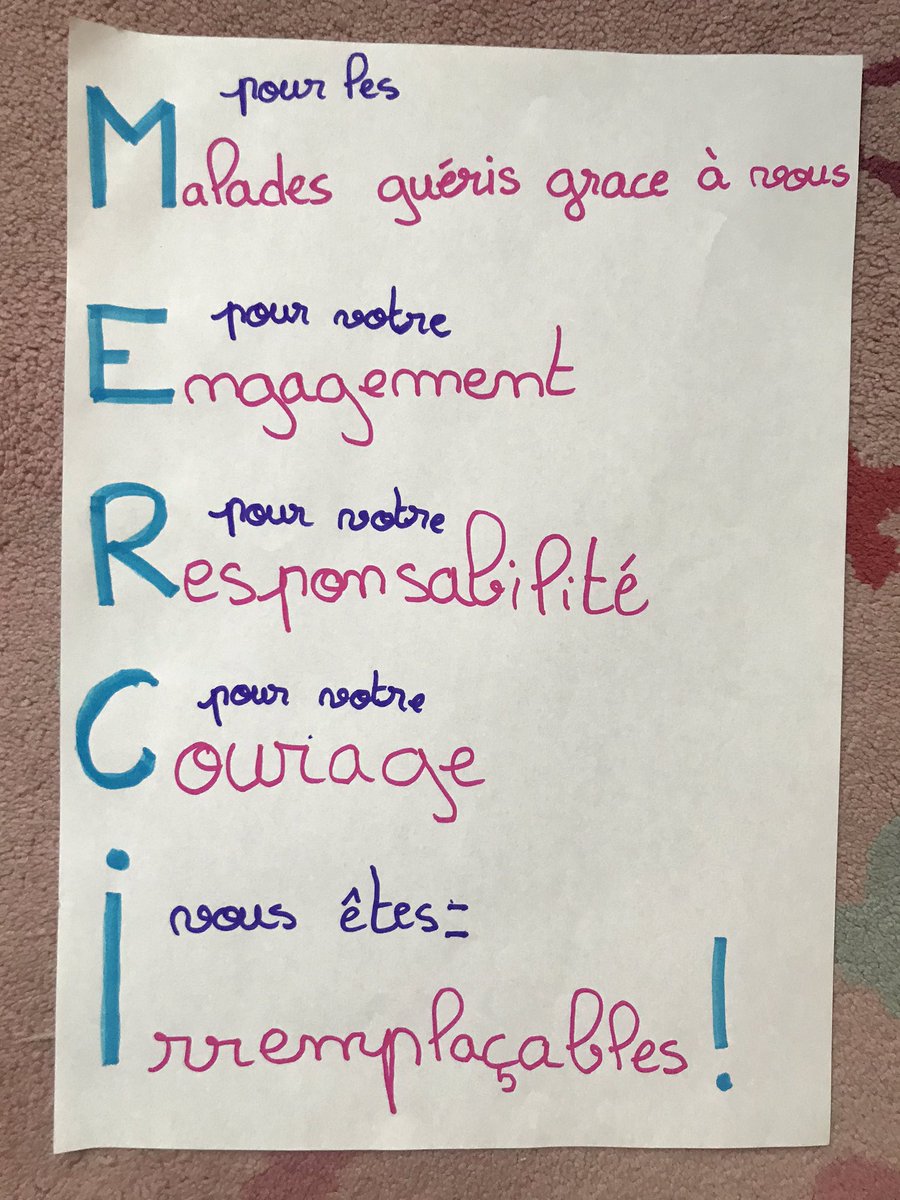 pour les
Malades guéris grace à vous
pour votre
Engagement
pour votre
Responsabilité
pour votre
Courage
vous êtes=
irremplaçables!